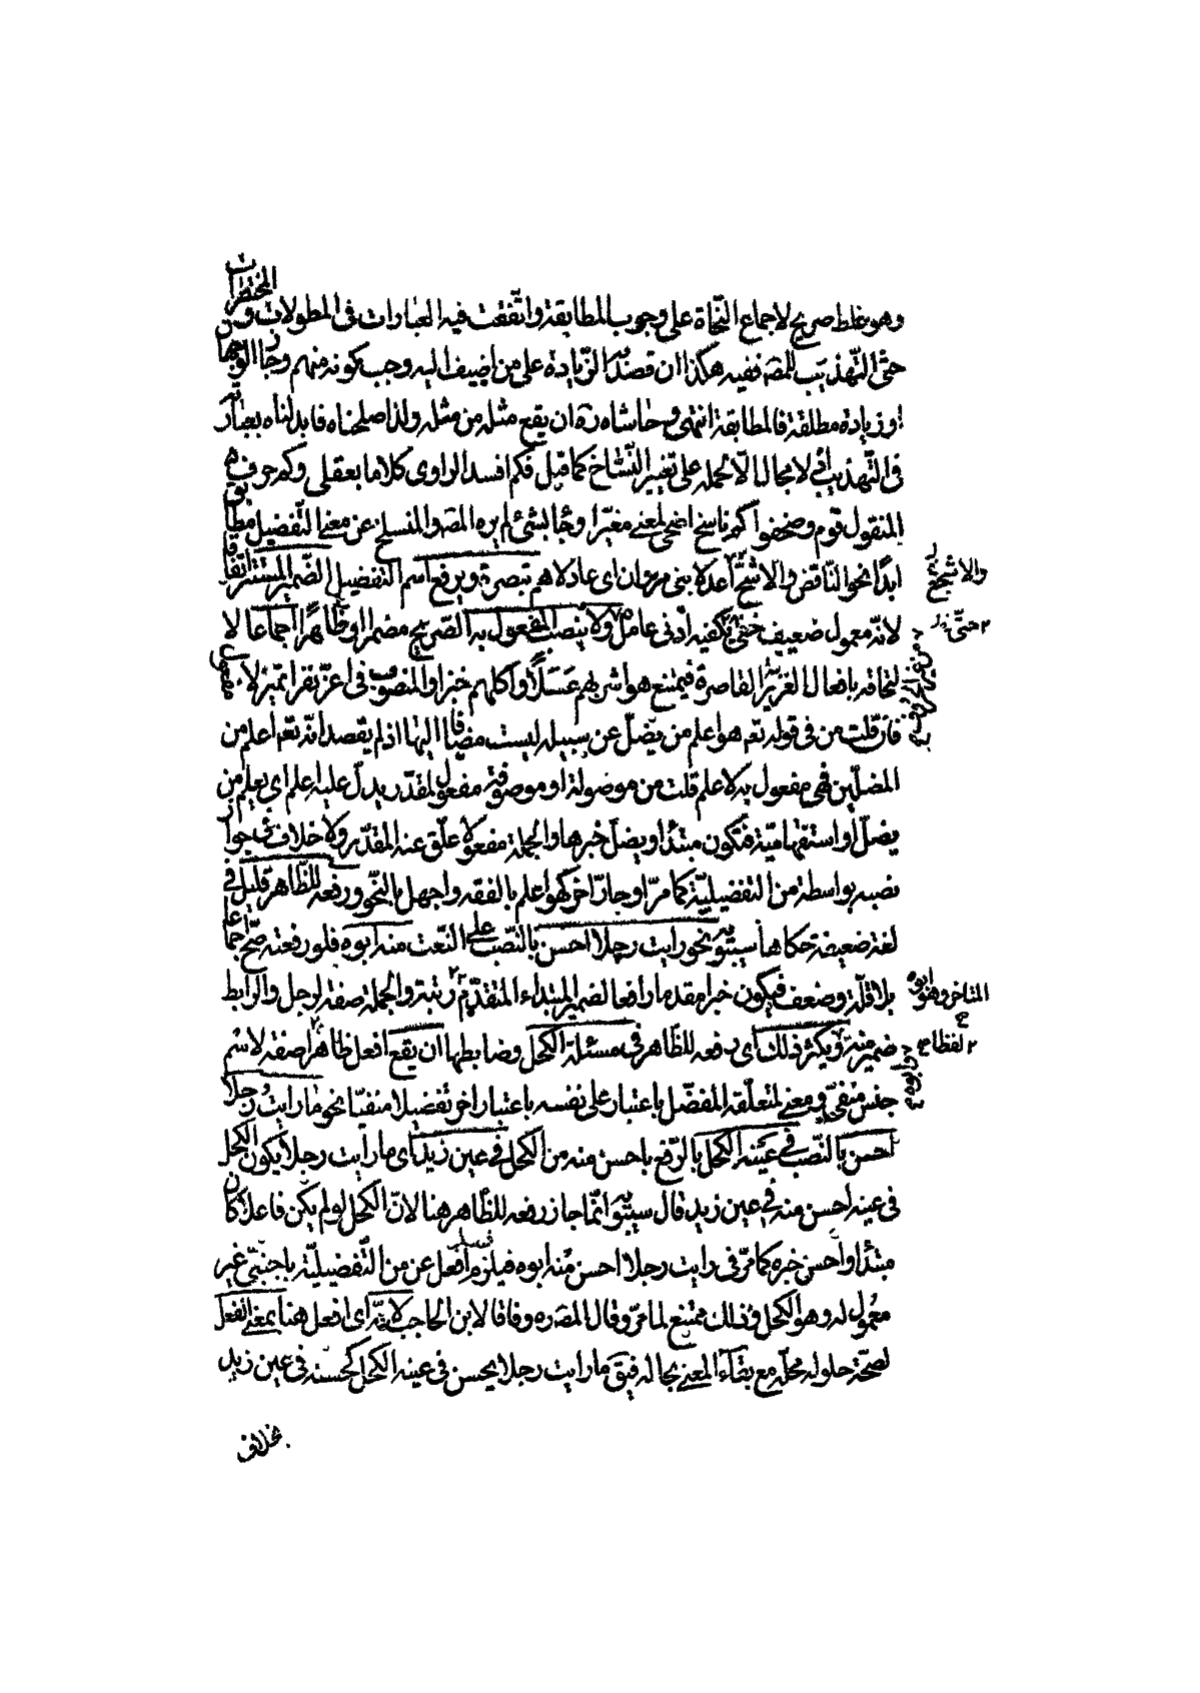 وهو غلط صريح لاجماع النّحاة على وجوب المطابقة واتّفقت فيه العبارات فى المطولات و المختصرات
حتّى التّهذيب للمصّ ففيه هكذا ان قصد الزّيادة على من اضيف اليه وجب كونه منهم وجاز الوجهان
او زيادة مطلقة فالمطابقة انتهى وحاشاه ره ان يقع مثله من مثله ولذا اصلحناه فابدلناه بعبارته
فى التّهذيب اذ لا مجال الّا لحمله على تغيير النّسّاخ كما قيل فكم افسد الراوى كلاما بعقله وكم حرف
المنقول قوم وصحفوا كم ناسخ اضحى لمعنى مغيّرا وجا بشئ لم يره المصّ والمنسلخ عن معنى التّفضيل مطابق
ابدا نحو النّاقص والاشجّ اعدلا بنى مروان اى عادلاهم تبصرة ويرفع اسم التفضيل الضّمير المستتر اتّفاقا
لانّه معمول ضعيف خفىّ يكفيه ادنى عامل ولا ينصب المفعول به الصّريح مضمرا او ظاهرا اجماعا لا
لتحاقه بافعال الغريزة القاصرة فيمتنع هو اشربهم عسلا و اكلهم خبزا والمنصوب فى اعزّ نفرا تميز لا مفعول
فان قلت من فى قوله تعه هو اعلم من يضلّ عن سبيله ليست مضافا اليها اذ لم يقصد انّه تعه اعلم من
المضلّين فهى مفعول به لاعلم قلت من موصولة او موصوفة مفعول لمقدّر يدلّ عليه اعلم اى يعلم من
يضلّ او استفهاميّة فتكون مبتدأ و يضلّ خبرها والجملة مفعولا علّق عنه المقدّر ولا خلاف فى جواز
نصبه بواسطة من التفضيليّة كما مرّ او جارّ اخر كهو اعلم بالفقه واجهل بالنّحو ورفعه للظّاهر قليل فى
لغة ضعيفة حكاها سيبويه نحو رايت رجلا احسن بالنّصب على النّعت منه ابوه فلو رفعته صحّ اجماعا
بلا قلّة وضعف فيكون خبرا مقدما رافعا لضمير المبتداء المتقدّم رتبة والجملة صفة لرجل والرابط
ضمير منه ويكثر ذلك اى رفعه للظّاهر فى مسئلة الكحل وضابطها ان يقع افعل ظاهرا صفة لاسم
جنس منفىّ و معنى لمتعلّقه المفضّل باعتبار على نفسه باعتبار اخر تفضيلا منفيّا نحو ما رايت رجلا
احسن بالنّصب فى عينه الكحل بالرّفع باحسن منه من الكحل فى عين زيد اى ما رايت رجلا يكون الكحل
فى عينه احسن منه فى عين زيد قال سيبويه انّما جاز رفعه للظّاهر هنا لانّ الكحل لو لم يكن فاعلا كان
مبتدأ و احسن خبره كما مرّ فى رايت رجلا احسن منه ابوه فيلزم فصل افعل عن من التّفضيليّة باجنبىّ غير
معمول له وهو الكحل وذلك ممتنع لما مرّ وقال المصّ ره وفاقا لابن الحاجب لانّه اى افعل هنا بمعنى الفعل
لصحّة حلوله محلّه مع بقاء المعنى بحاله فيق ما رايت رجلا يحسن فى عينه الكحل كحسنه فى عين زيد
بخلاف
والاشجّ
حتّى
المتاخر وهو ابوه
لفظا